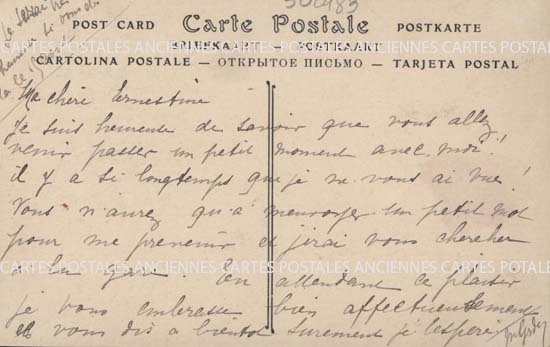 50483
POST CARD Carte Postale POSTKARTE
BRIEFKAART — POSTKAART
CARTOLINA POSTALE — ОТКРЫТОЕ ПИСЬМО — TARJETA POSTAL
Ma chère Ernestine
Je suis heureuse de savoir que vous allez
venir passer un petit moment avec moi!
il y a si longtemps que je ne vous ai vue!
Vous n'aurez qu'a m'envoyer un petit mot
pour me prevenir et j'irai vous chercher
CARTES POSTALES ANCIENNES CARTES POSTALES ANCIENNES
a la gare. En attendant ce plaisir
je vous embrasse bien affectueusement
et vous dis a bientot surement je l'espère